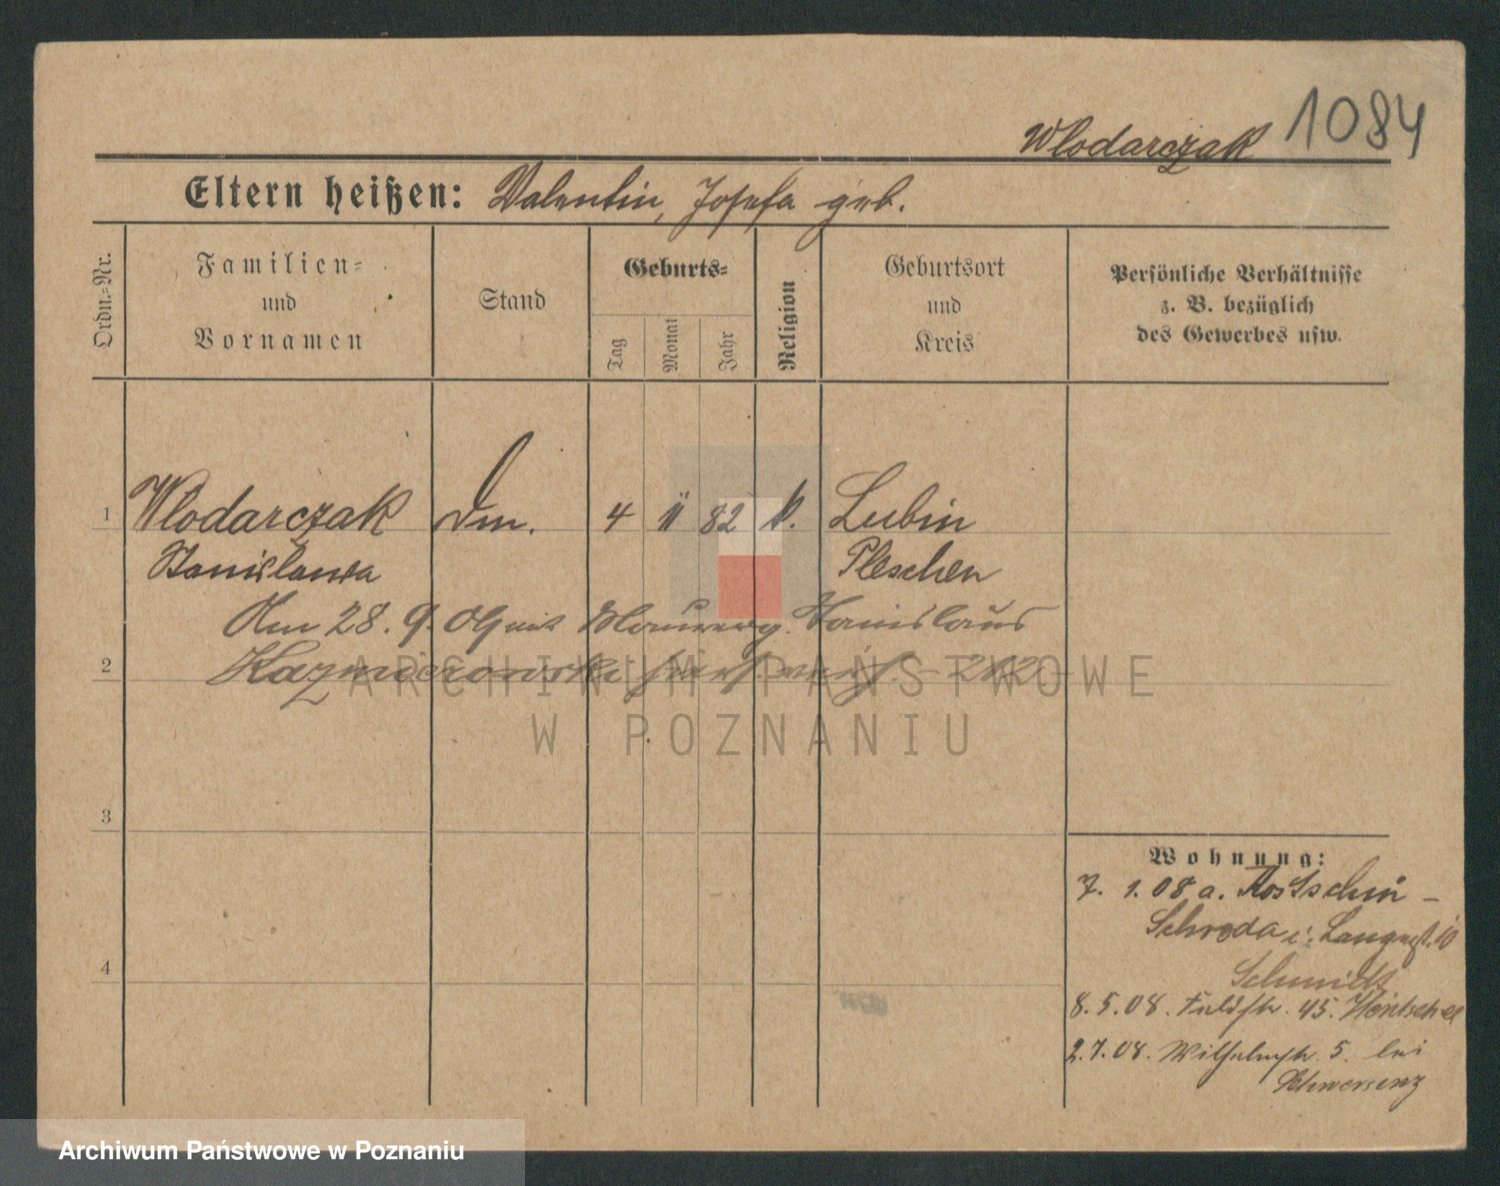 1084
Wlodarczak
Eltern heißen: Valentin, Josefa geb.
Ordn.=Nr.
Familien=
und
Vornamen
Stand
Geburts=
Tag
Monat
Jahr
Religion
Geburtsort
und
Kreis
Persönliche Verhältnisse
z. B. bezüglich
des Gewerbes usw.
1 Wlodarczak Dm. 4 11 82 k. Lubin
Stanislawa Pleschen
Am 28. 9. 08 mit Stanislaus
2 Kazmierowski
ARCHIWUM PAŃSTWOWE
W POZNANIU
3
4
Wohnung:
7. 1. 08 a. Kostschin -
Schroda i. Langestr. 10
Schmidt
8. 5. 08. Feldstr. 45. Hentschel
2. 7. 08. Wilhelmstr. 5. bei
Schwersenz
Archiwum Państwowe w Poznaniu